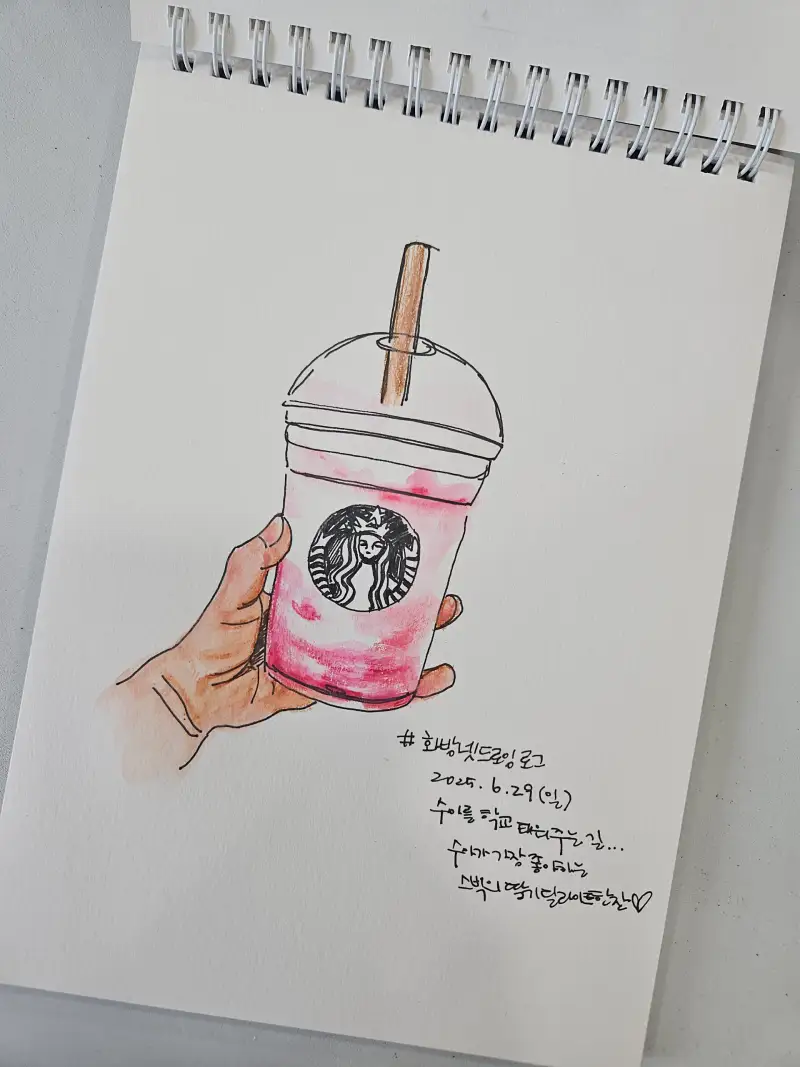 #화방넷드로잉로그
2025. 6. 29 (일)
수아를 학교 태워주는 길...
수아가 가장 좋아하는
스벅의 딸기딜라이트한잔♡